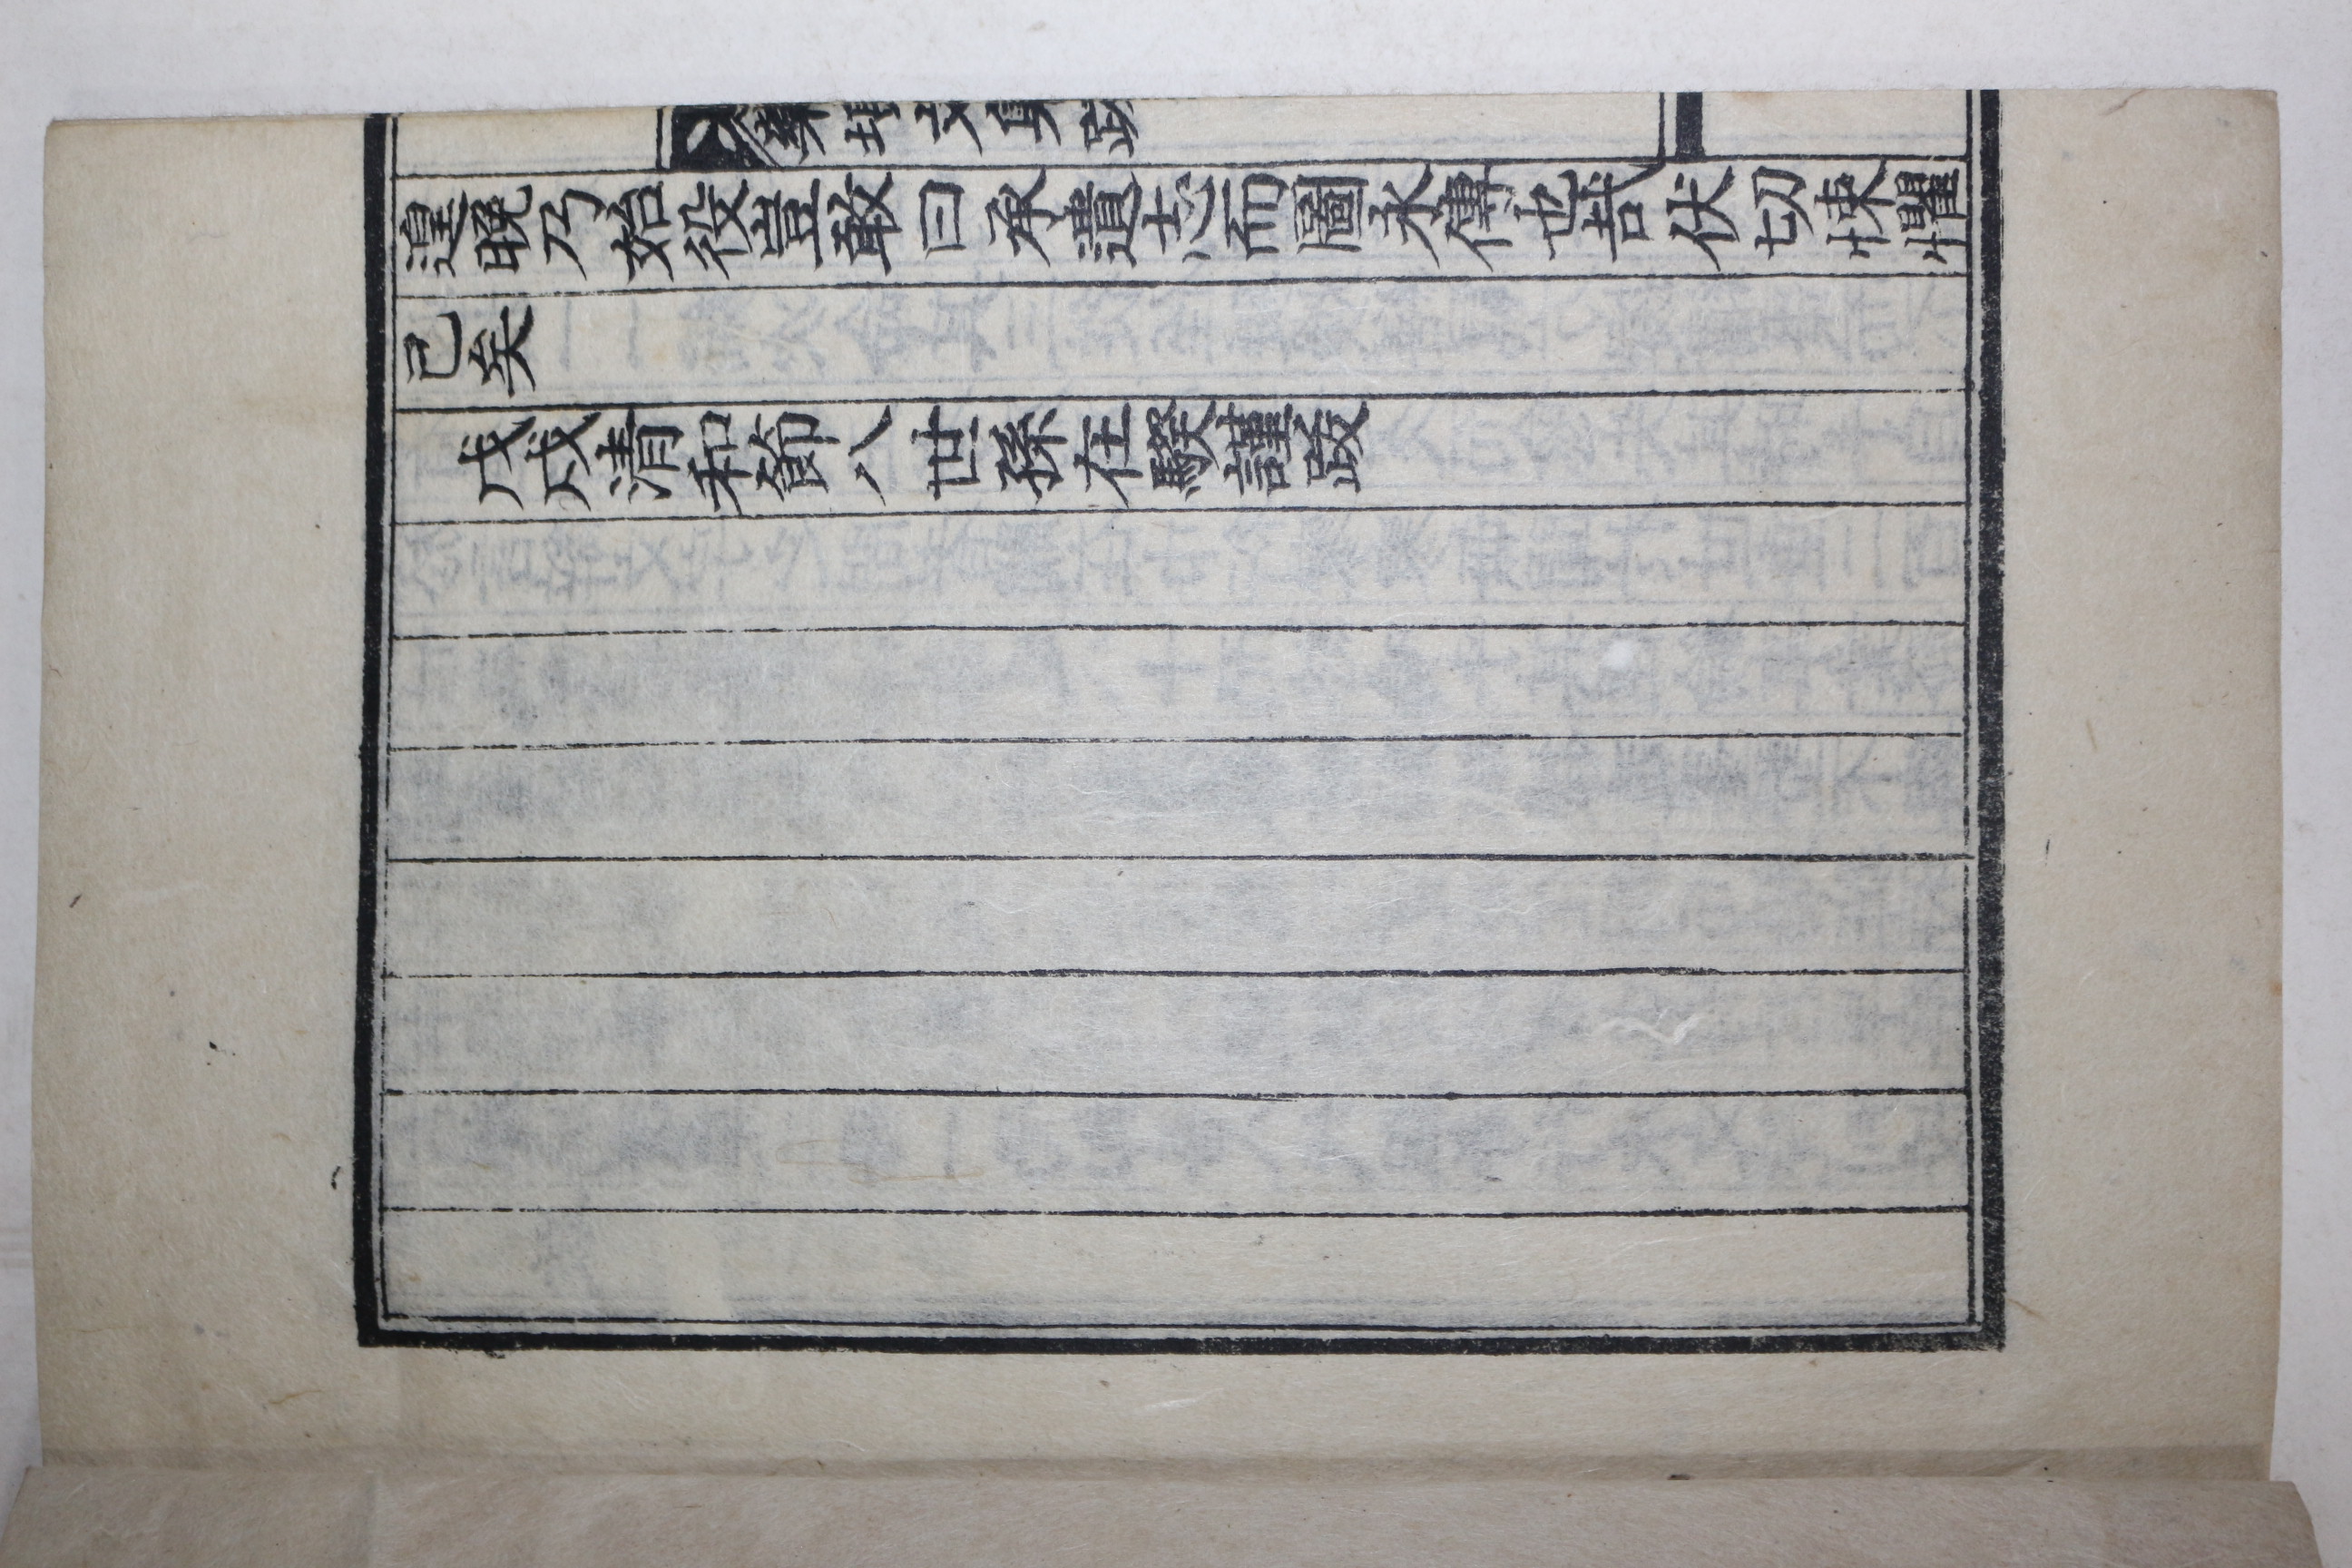 文集跋
遑晚乃始役豈敢曰承遺志而圖永傳也哉伏切悚懼
已矣
戊戌清和節八世孫在騤謹跋